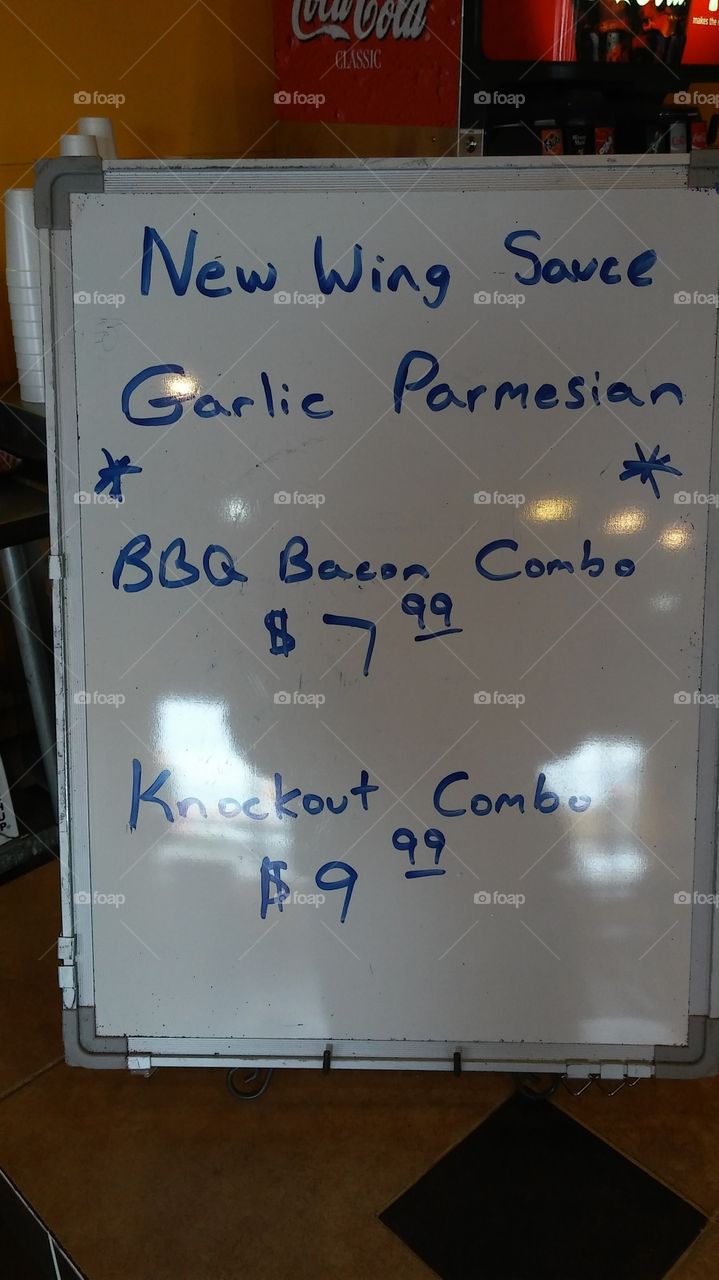 Coca-Cola
CLASSIC
makes the
New Wing Sauce
Garlic Parmesian
*                *
BBQ Bacon Combo
$ 7 99
Knockout Combo
$ 9 99
foap